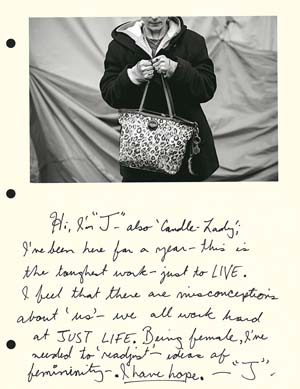 Hi, I'm "J" - also 'Candle Lady';
I've been here for a year - this is
the toughest work - just to LIVE.
I feel that there are misconceptions
about 'us' - we all work hard
at JUST LIFE. Being female, I've
needed to 'readjust' - ideas of
femininity -. I have hope. - "J"